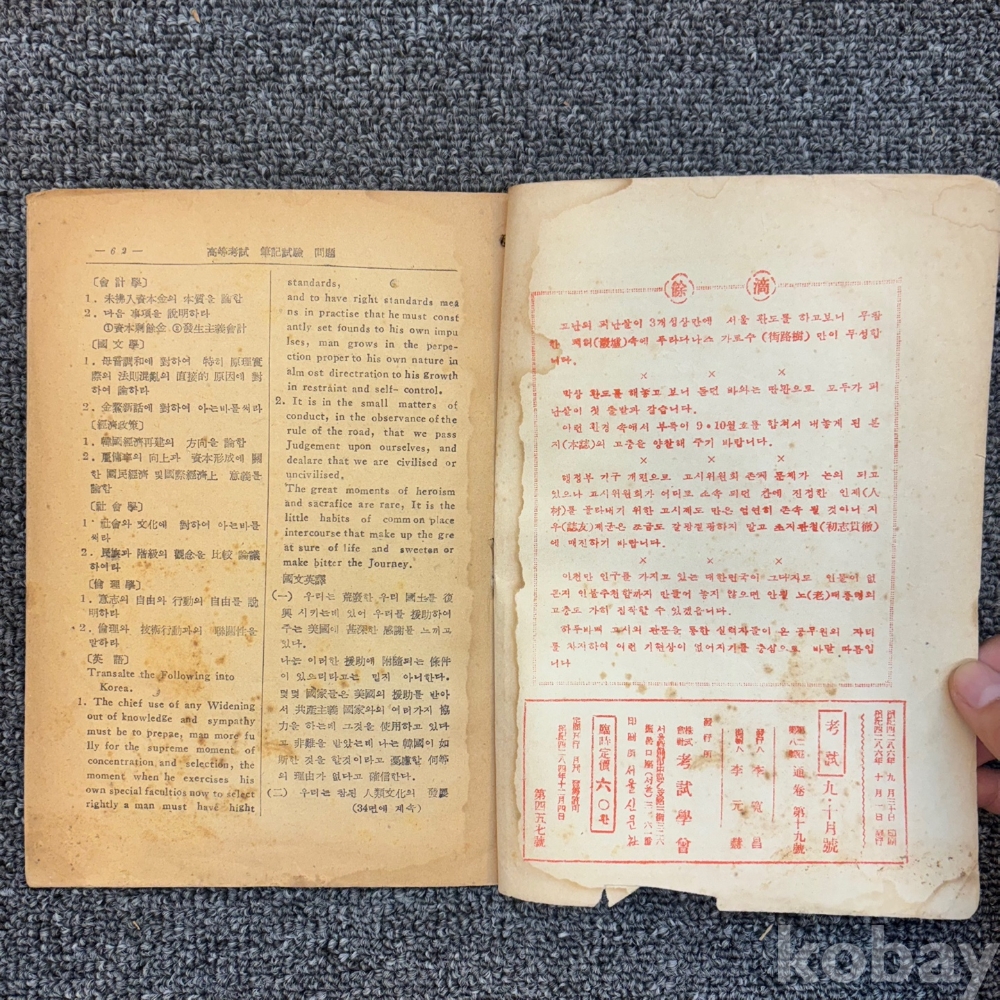 — 62 —
高等考試 筆記試驗 問題
〔會計學〕
1. 未拂入資本金의 本質을 論함
2. 다음 事項을 說明하라
①資本剩餘金 ②發生主義會計
〔國文學〕
1. 母音調和에 對하여 特히 原理實
際의 法則混亂의 直接的 原因에 對
하여 論하라
2. 金鰲新話에 對하여 아는바를써라
〔經濟政策〕
1. 韓國經濟再建의 方向을 論함
2. 雇傭率의 向上과 資本形成에 關
한 國民經濟 및國際經濟上 意義를
論함
〔社會學〕
1 社會와 文化에 對하여 아는바를
써라
2. 民族과 階級의 觀念을 比較 論議
하여라
〔倫理學〕
1. 意志의 自由와 行動의 自由를 說
明하라
2. 倫理와 技術行動과의 聯關性을
말하라
〔英語〕
Transalte the Following into
Korea.
1. The chief use of any Widening
out of knowledge and sympathy
must be to prepae, man more fu
lly for the supreme moment of
concentration and selection, the
moment when he exercises his
own special faculties now to select
rightly a man must have hight
standards,
and to have right standards mea
ns in practise that he must const
antly set founds to his own impu
lses, man grows in the perpe-
ction proper to his own nature in
alm ost directration to his growth
in restraint and self- control.
2. It is in the small matters of
conduct, in the observance of the
rule of the road, that we pass
Judgement upon ourselves, and
dealare that we are civilised or
uncivilised,
The great moments of heroism
and sacrafice are rare, It is the
little habits of common place
intercourse that make up the gre
at sure of life and sweeten or
make bitter the Journey.
國文英譯
(一) 우리는 荒廢한 우리 國土를 復
興 시키는데 있어 우리를 援助하여
주는 美國에 甚深한 感謝를 느끼고
있다.
나는 이러한 援助에 附隨되는 條件
이 있으리라고는 믿지 아니한다.
몇몇 國家들은 美國의 援助를 받아
서 共產主義 國家와의 여러가지 協
力을 하는데 그것을 使用하고 있다
고 非難을 받았는데 나는 韓國이 如
斯한 것을 할것이라고 憂慮할 何等
의 理由가 없다고 確信한다.
(二) 우리는 참된 人類文化의 發展
(34면에 계속)
餘滴
고난의 피난살이 3개성상만에 서울 환도를 하고보니 무참
한 폐허(廢墟)속에 푸라다나스 가로수(街路樹)만이 무성합
니다.
× × ×
막상 환도를 해놓고 보니 듣던 바와는 딴판으로 모두가 피
난살이 첫 출발과 같습니다.
이런 환경 속에서 부득이 9•10월호를 합쳐서 내놓게 된 본
지(本誌)의 고충을 양찰해 주기 바랍니다.
× × ×
행정부 기구 개편으로 고시위원회 존폐 문제가 논의 되고
있으나 고시위원회가 어디로 소속 되던 간에 진정한 인재(人
材)를 골라내기 위한 고시제도 만은 엄연히 존속 될 것이니 지
우(誌友)제군은 조금도 갈팡질팡하지 말고 초지관철(初志貫徹)
에 매진하기 바랍니다.
× × ×
이천만 인구를 가지고 있는 대한민국이 그다지도 인물이 없
는지 인물추천함까지 만들어 놓지 않으면 안될 노(老)대통령의
고충도 가히 짐작할 수 있겠읍니다.
하루바삐 고시의 관문을 통한 실력자들이 온 공무원의 자리
를 차지하여 이런 기현상이 없어지기를 충심으로 바랄 따름입
니다
檀紀四二八六年 九月三十日 印刷
檀紀四二八六年 十月一日 發行
考試 九•十月號
通卷 第十九號
發行人 李寬昌
編輯人 李元赫
發行所
株式會社 考試學會
印刷所 서울신문社
臨時定價 六〇환
檀紀四二八四年十二月四日
第四五七號
kobay